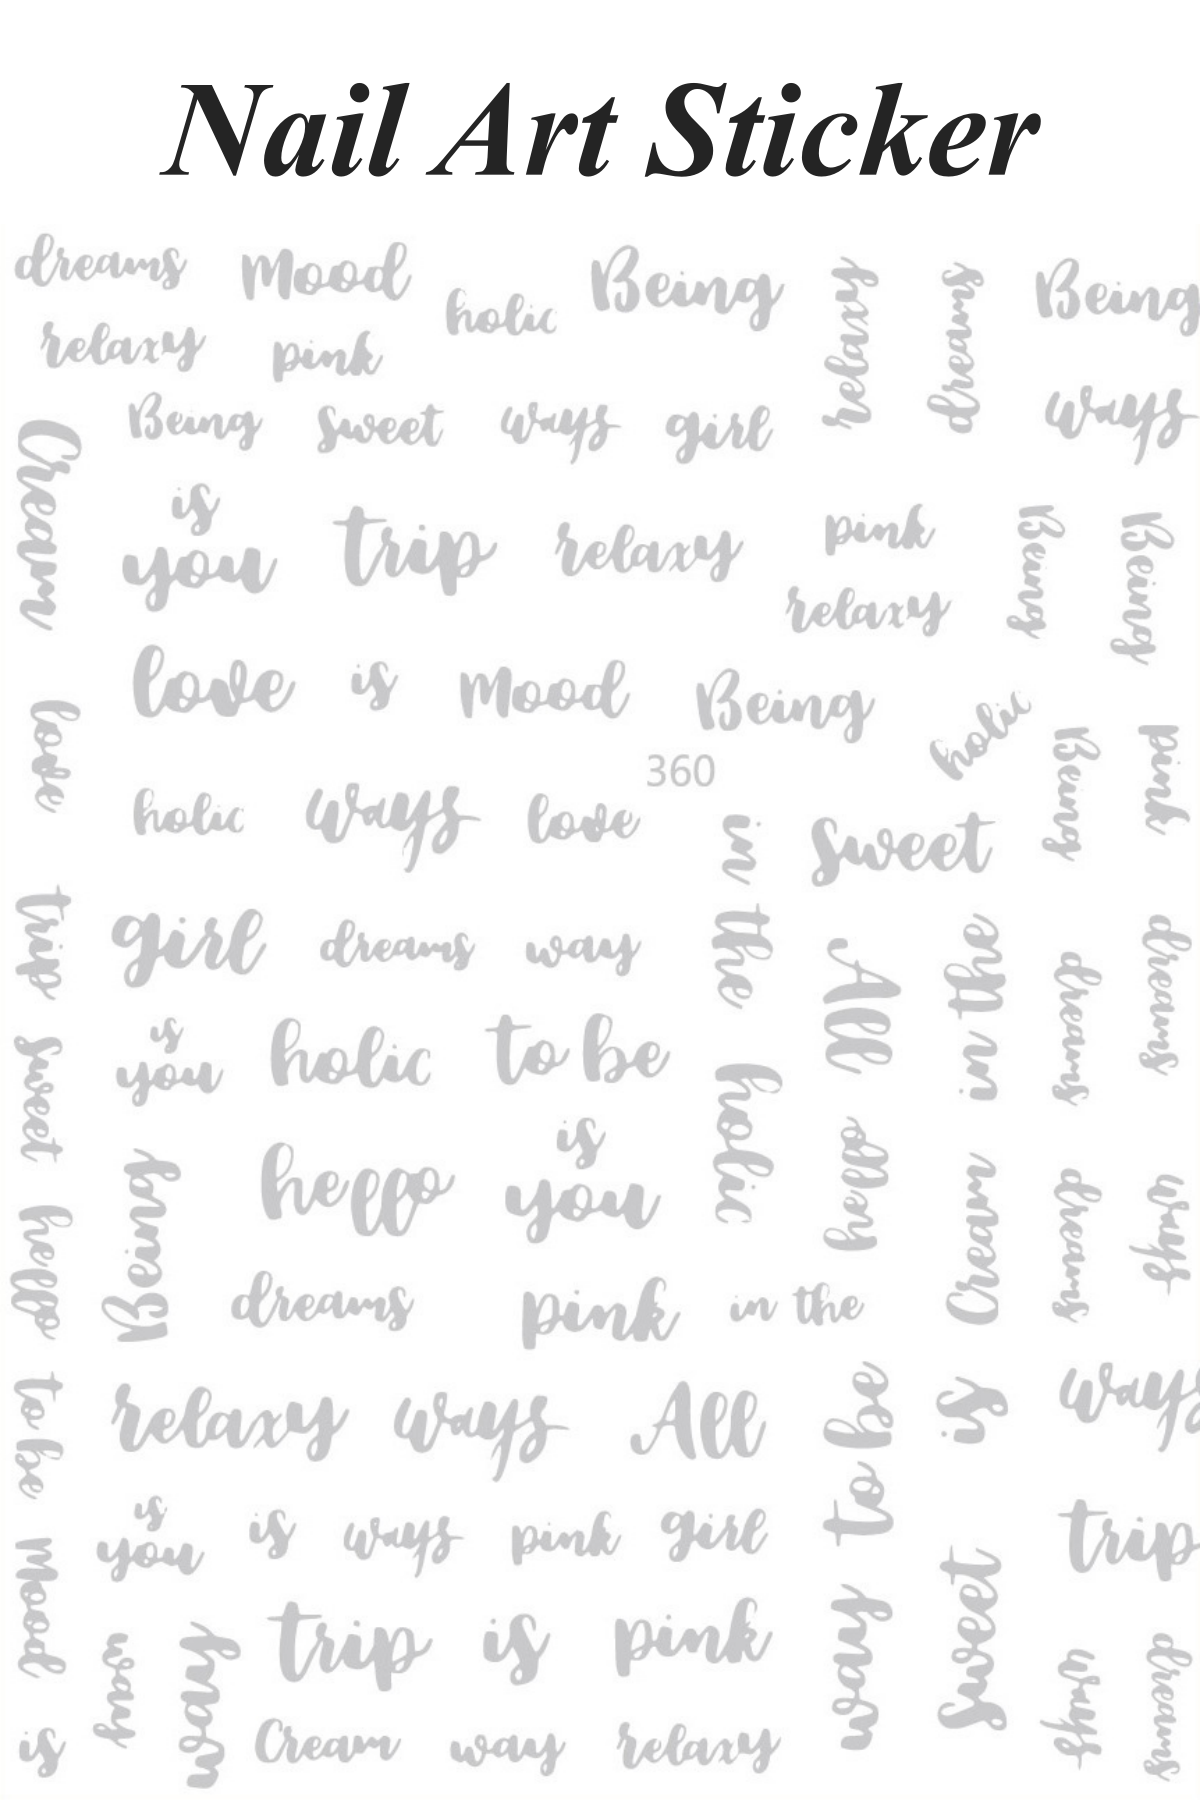 Nail Art Sticker
dreams Mood holic Being relaxy dreams Being
relaxy pink
Being Sweet ways girl ways
Cream
is
you trip relaxy pink Being Being
relaxy
love is Mood Being holic
love
360
Being pink
holic ways love in the Sweet
trip girl dreams way All in the dreams dreams
is
you holic to be
Sweet
holic hello Cream dreams ways
hello Being hello is
you
dreams pink in the
to be relaxy ways All to be is ways
is
you is ways pink girl trip
Mood way way trip is pink way Sweet ways dreams
is Cream way relaxy